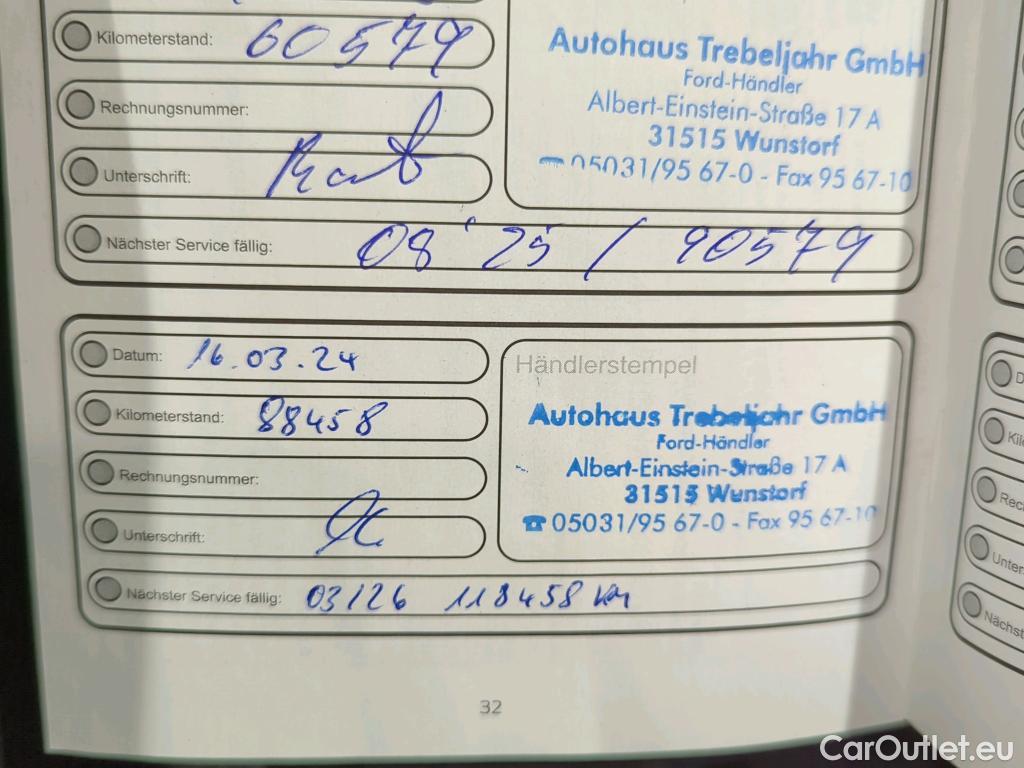 Kilometerstand: 60579
Rechnungsnummer:
Unterschrift:
Nächster Service fällig: 08'25 / 90579
Autohaus Trebeljahr GmbH
Ford-Händler
Albert-Einstein-Straße 17 A
31515 Wunstorf
☎ 05031/95 67-0 - Fax 95 67-10
Datum: 16.03.24
Kilometerstand: 88458
Rechnungsnummer:
Unterschrift:
Nächster Service fällig: 03/26 118458 km
Händlerstempel
Autohaus Trebeljahr GmbH
Ford-Händler
Albert-Einstein-Straße 17 A
31515 Wunstorf
☎ 05031/95 67-0 - Fax 95 67-10
D
Kile
Rec
Unter
Nächst
32
CarOutlet.eu